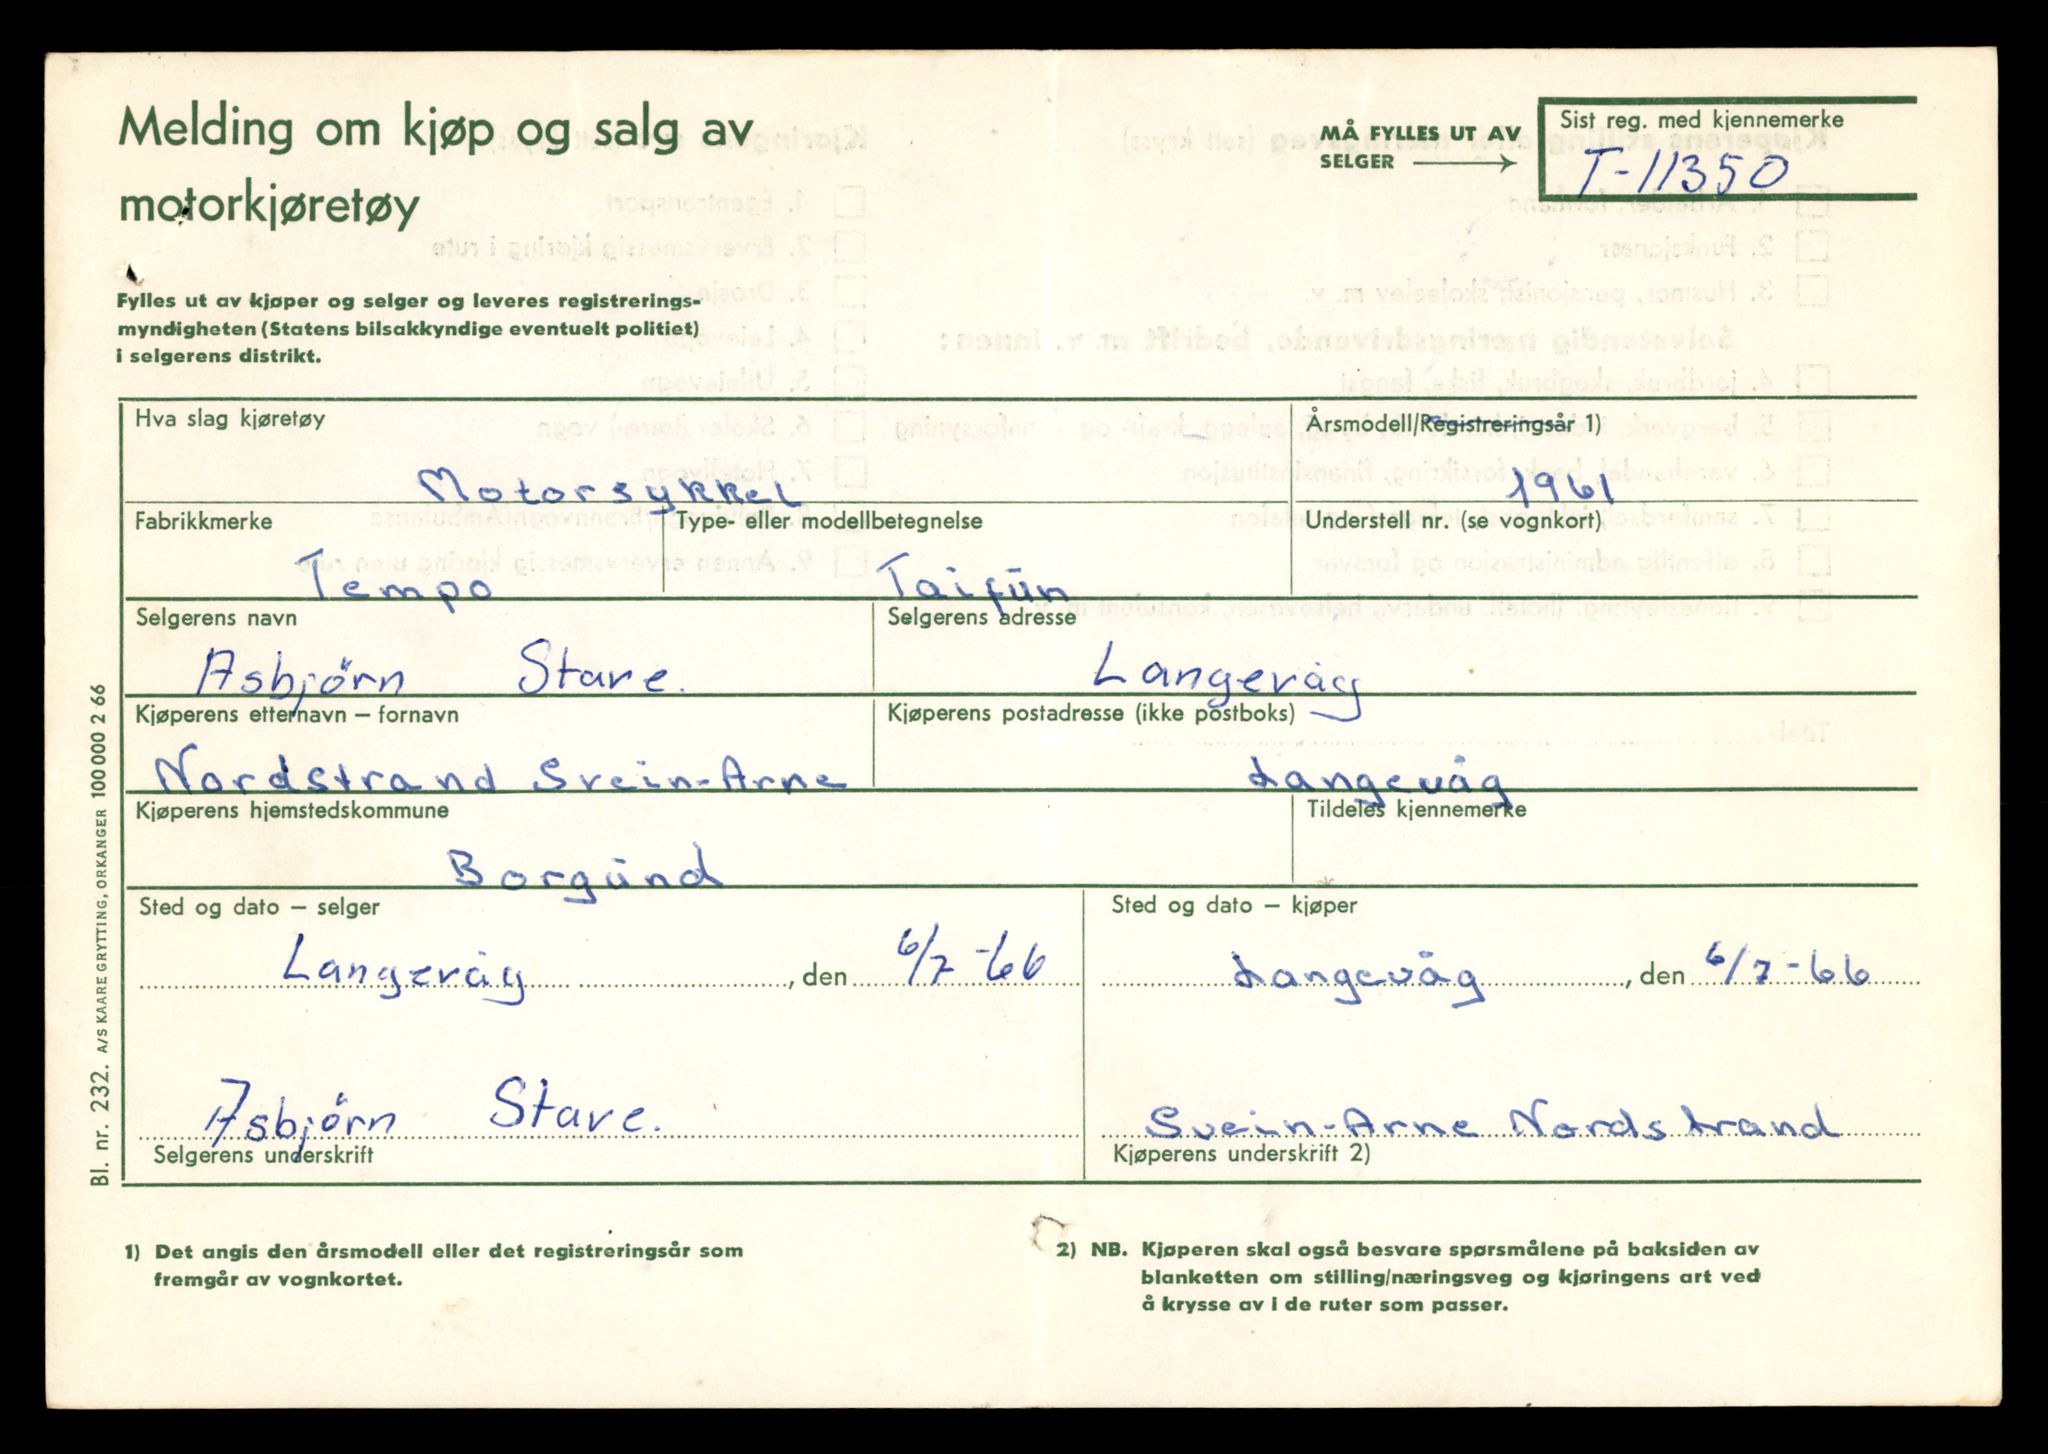 Melding om kjøp og salg av
motorkjøretøy
MÅ FYLLES UT AV
SELGER
Sist reg. med kjennemerke
T-11350
Fylles ut av kjøper og selger og leveres registrerings-
myndigheten (Statens bilsakkyndige eventuelt politiet)
i selgerens distrikt.
Hva slag kjøretøy
Årsmodell/Registreringsår 1)
Motorsykkel
1961
Fabrikkmerke
Type- eller modellbetegnelse
Understell nr. (se vognkort)
Tempo
Taifun
Selgerens navn
Selgerens adresse
Asbjørn Stave.
Langevåg
Kjøperens etternavn – fornavn
Kjøperens postadresse (ikke postboks)
Nordstrand Svein-Arne
Langevåg
Kjøperens hjemstedskommune
Tildeles kjennemerke
Borgund
Sted og dato – selger
Sted og dato – kjøper
Langevåg, den 6/7-66
Langevåg, den 6/7-66
Asbjørn Stave.
Svein-Arne Nordstrand
Selgerens underskrift
Kjøperens underskrift 2)
Bl. nr. 232. A/S KAARE GRYTTING, ORKANGER 100 000 2 66
1) Det angis den årsmodell eller det registreringsår som
fremgår av vognkortet.
2) NB. Kjøperen skal også besvare spørsmålene på baksiden av
blanketten om stilling/næringsveg og kjøringens art ved
å krysse av i de ruter som passer.